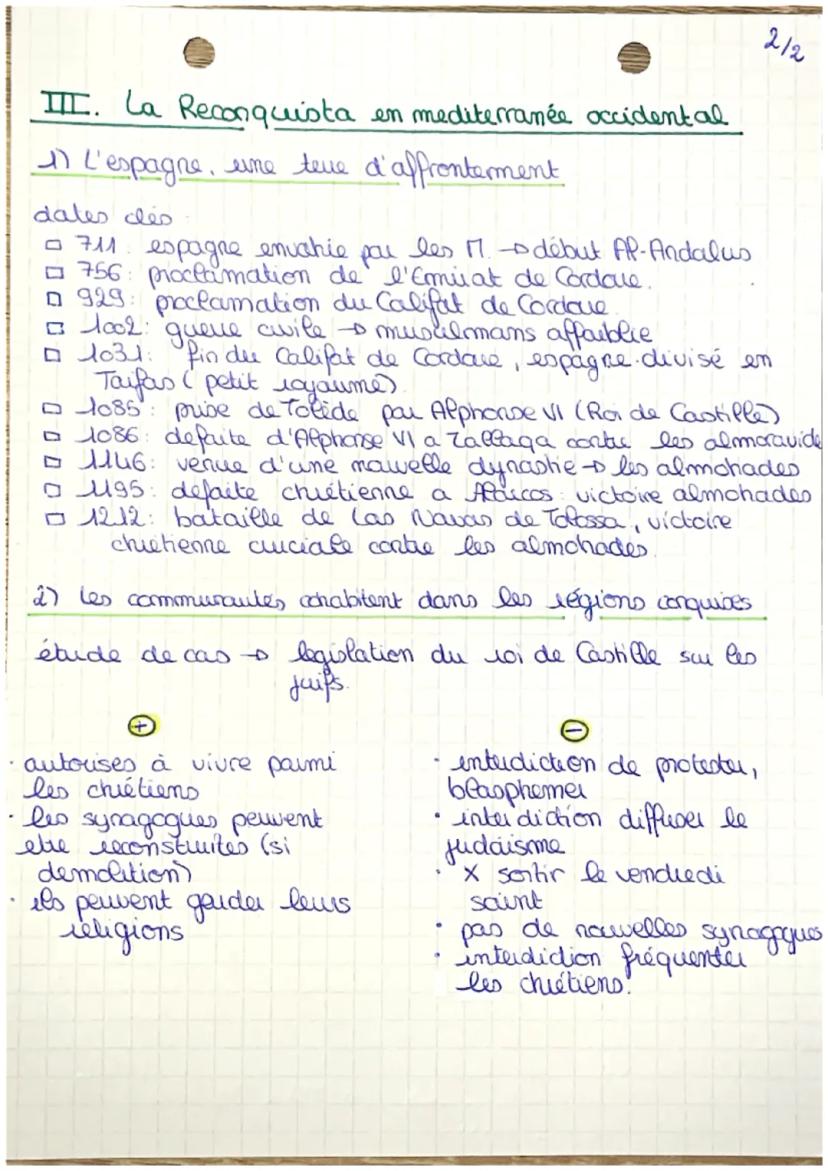 2/2
III. La Reconquista en mediterranée occidental
1) L'espagne, une terre d'affrontement
dates clés
711: espagne envahie par les M. → début Al-Andalus
756: proclamation de l'Emirat de Cordoue.
929: proclamation du Califat de Cordoue
1002: guerre civile → musulmans affaiblie
1031: fin du Califat de Cordoue, espagne divisé en
Taifas (petit royaume)
1085: prise de Tolède par Alphonse VI (Roi de Castille)
1086: defaite d'Alphonse VI a Zallaqa contre les almoravide
1146: venue d'une nouvelle dynastie → les almohades
1195: défaite chrétienne a Alarcos: victoire almohades
1212: bataille de Las Navas de Tolossa, victoire
chretienne cruciale contre les almohades.
2) Les communautés cohabitent dans les régions conquises
étude de cas → legislation du roi de Castille sur les
juifs.
+
-
· autorises à vivre parmi
les chrétiens
· les synagogues peuvent
etre reconstruites (si
demolition)
· ils peuvent garder leurs
religions
· interdiction de protester,
blasphemer
· interdiction diffuser le
judaïsme
· X sortir le vendredi
saint
· pas de nouvelles synagogues
· interdiction fréquenter
les chrétiens.